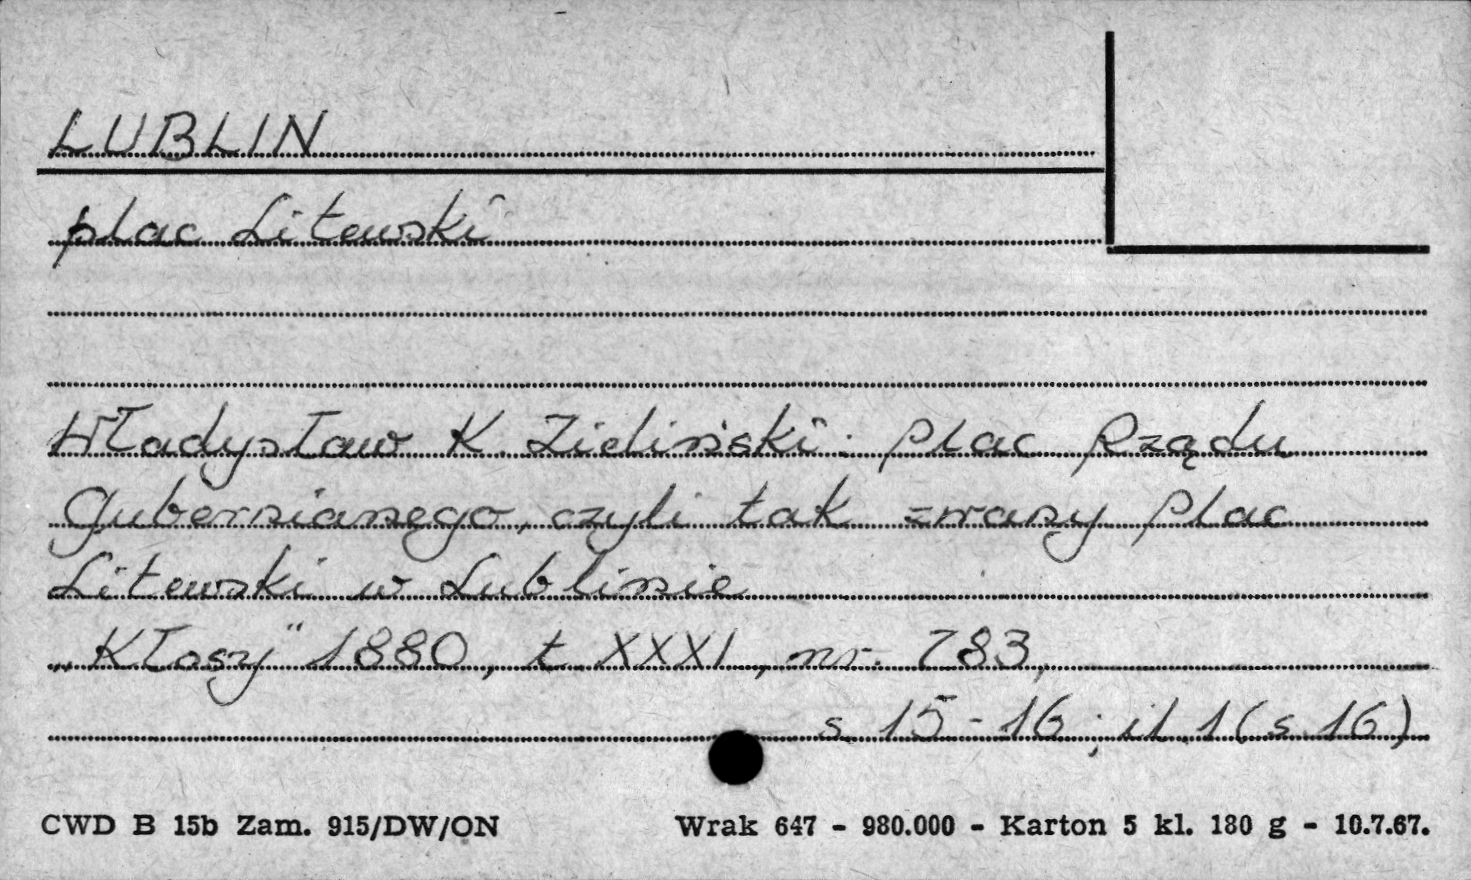 LUBLIN
plac Litewski
Władysław K. Zieliński: Plac Rządu
Gubernianego, czyli tak zwany Plac
Litewski w Lublinie
„Kłosy" 1880, t. XXXI, nr. 783,
s. 15-16; il. 1 (s. 16)
CWD B 15b Zam. 915/DW/ON Wrak 647 - 980.000 - Karton 5 kl. 180 g - 10.7.67.